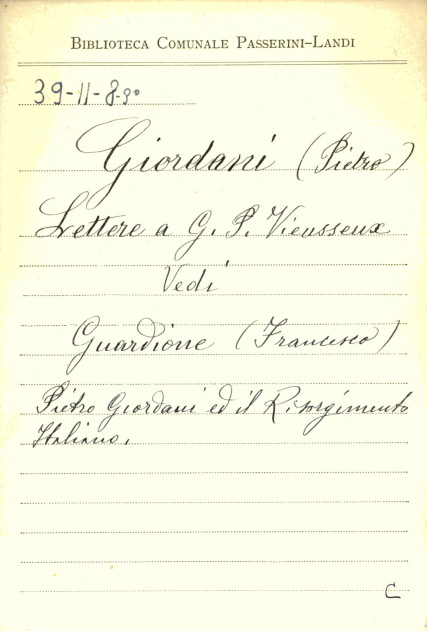 BIBLIOTECA COMUNALE PASSERINI-LANDI
39-11-8.3°
Giordani (Pietro)
Lettere a G. P. Vieusseux
Vedi
Guardione (Francesco)
Pietro Giordani ed il Risorgimento
Italiano.
C